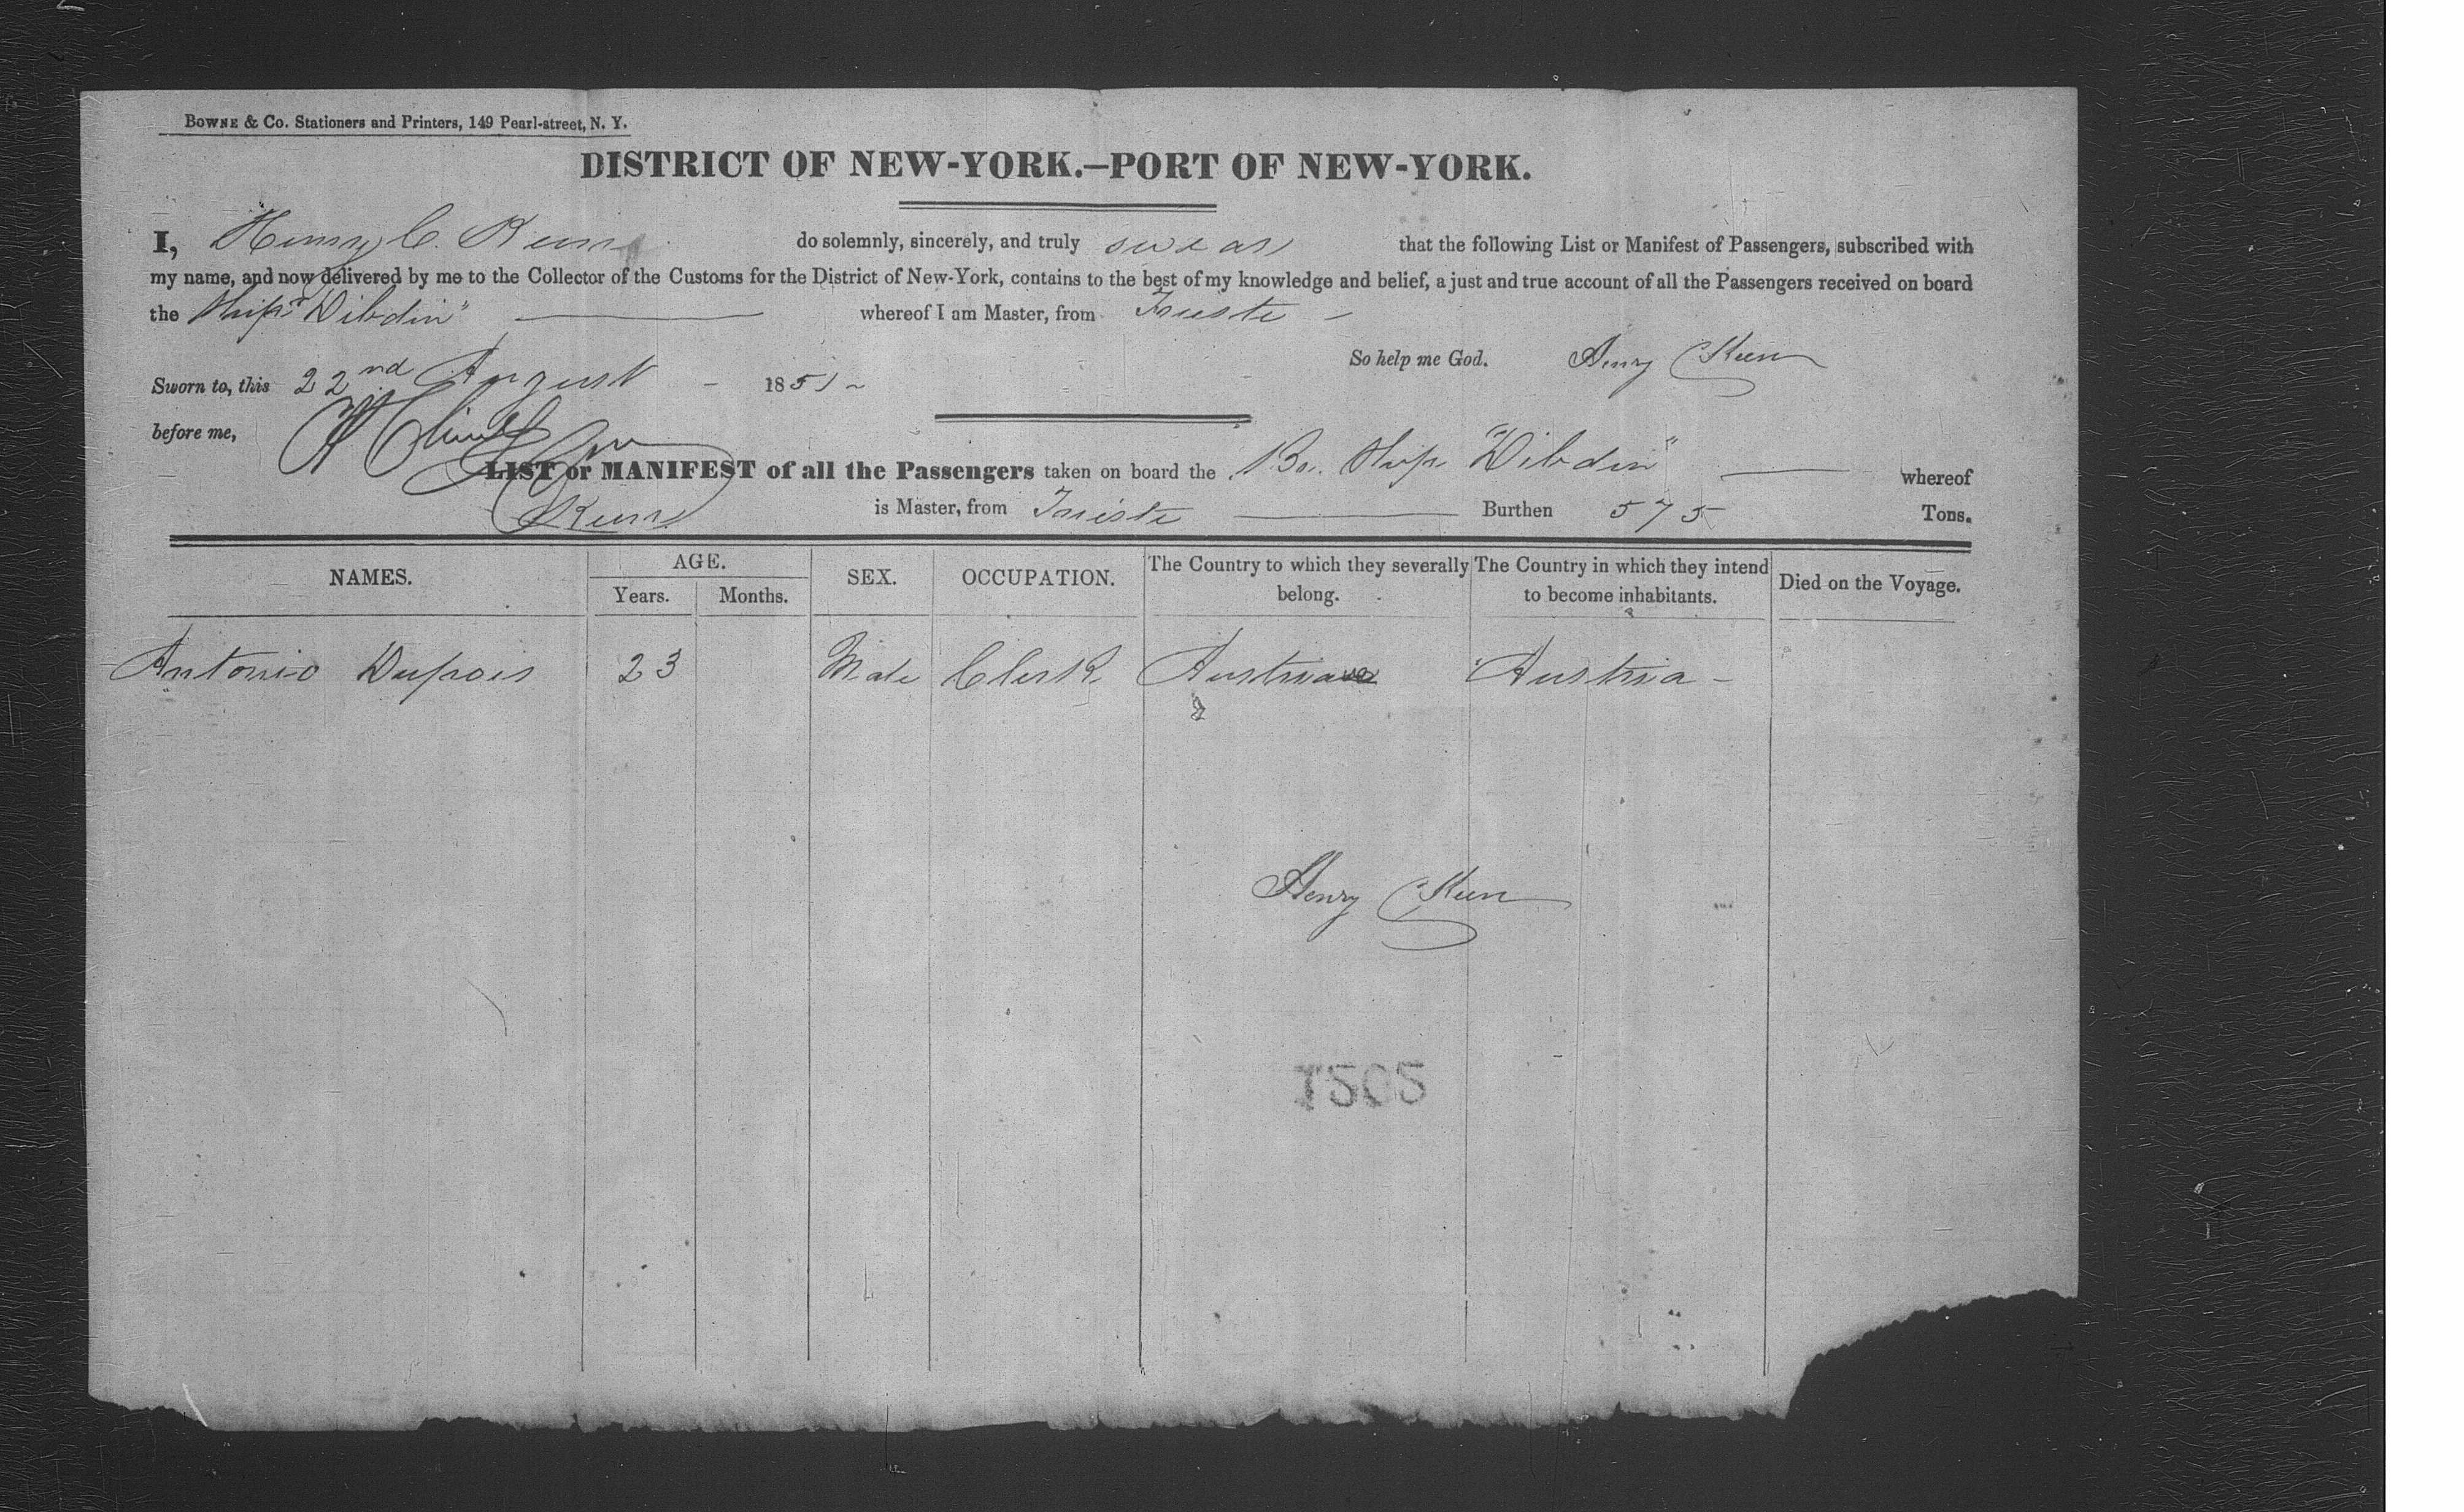 BOWNE & CO. Stationers and Printers, 149 Pearl-street, N. Y.
DISTRICT OF NEW-YORK.—PORT OF NEW-YORK.
I, Henry C. Keen do solemnly, sincerely, and truly swear that the following List or Manifest of Passengers, subscribed with
my name, and now delivered by me to the Collector of the Customs for the District of New-York, contains to the best of my knowledge and belief, a just and true account of all the Passengers received on board
the Ship "Dibdin" whereof I am Master, from Trieste –
So help me God. Henry C Keen
Sworn to, this 22nd August – 1851 –
before me,
LIST or MANIFEST of all the Passengers taken on board the Br. Ship "Dibdin" whereof
Keen is Master, from Trieste Burthen 575 Tons.
NAMES. AGE. Years. Months. SEX. OCCUPATION. The Country to which they severally belong. The Country in which they intend to become inhabitants. Died on the Voyage.
Antonio Dupois 23 Male Clerk Austria Austria –
Henry C Keen
1505